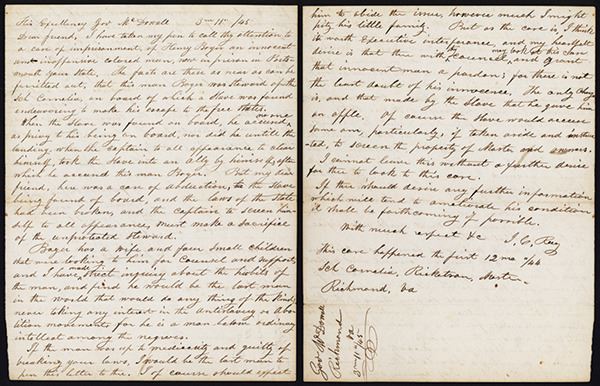 His Excellency Gov McDowell 3mo 15th /45
Dear friend, I have taken my pen to call thy attention to
a case of imprisonment, of Henry Boyer an innocent
and inoffensive colored man, now in prison in Ports-
mouth your state. The facts are these as near as can be
ferritted out, that this man Boyer was Steward of the
Sch Cornelia, on board of which a Slave was found
endeavouring to make his escape to the free states.
When the slave was found on board, he accused none
as privy to his being on board, nor did he until the
landing, when the Captain to all appearance to clear
himself, took the Slave into an Ally by himself, after
which he accused this man Boyer. But my dear
friend, here was a case of abduction, the Slave
being found on board, and the laws of the State
had been broken, and the Captain to screen him-
self to all appearance, must make a sacrifice
of the unprotected Steward.
Boyer has a wife and four Small children
that were looking to him for Council and support,
and I have made strict inquiry about the habits of
the man, and find he would be the last man
in the world that would do any thing of the kind,
never taking any interest in the Antislavery or Abo-
lition movements, for he is a man below ordinary
intellect among the negroes.
If the man was up to and guilty of
breaking your laws, I would be the last man to
pen this letter to thee. I of course should expect
him to abide the issue, however much I might
pity his little family. But as the case is, I think
it worth Executive interference, and my heartfelt
desire is that thee with thy Council, may look at this case and grant
that innocent man a pardon; for there is not
the least doubt of his innocence. The only charge
is, and that made by the Slave that he gave him
an apple. Of course the Slave would accuse
some one, particularly, if taken aside and instruc-
ted, to screen the property of Master and owners.
I cannot leave this without a further desire
for thee to look to this case.
If thee should desire any further information
which will tend to ameliorate his condition,
it shall be forthcoming if possible.
With much respect &c J. C.
This case happened the first 12 mo /44
Sch Cornelia, Ricketson, Master
Richmond, Va
Gov McDowell
Richmond
Va
3mo 15th /45